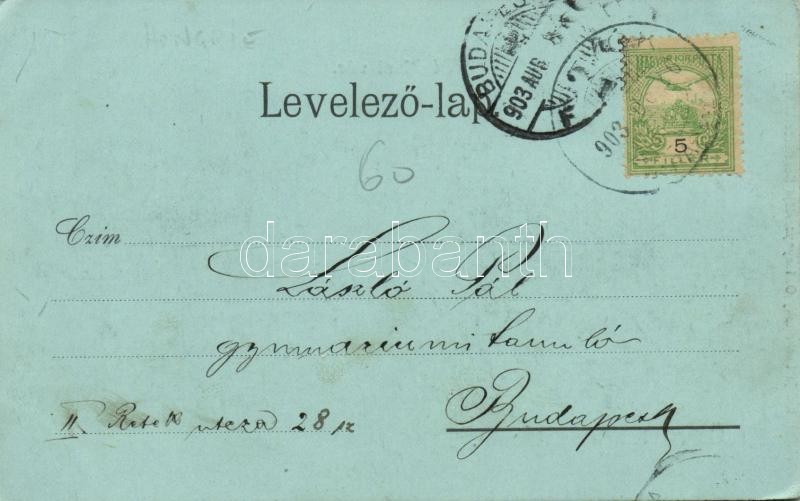 Levelező-lap.
BUDAPEST
903 AUG
903
MAGYAR KIR. POSTA
5
FILLÉR
60
Czim
László Pál
gymnasiumi tanuló
Budapest
II Retek utcza 28 sz
darabanth